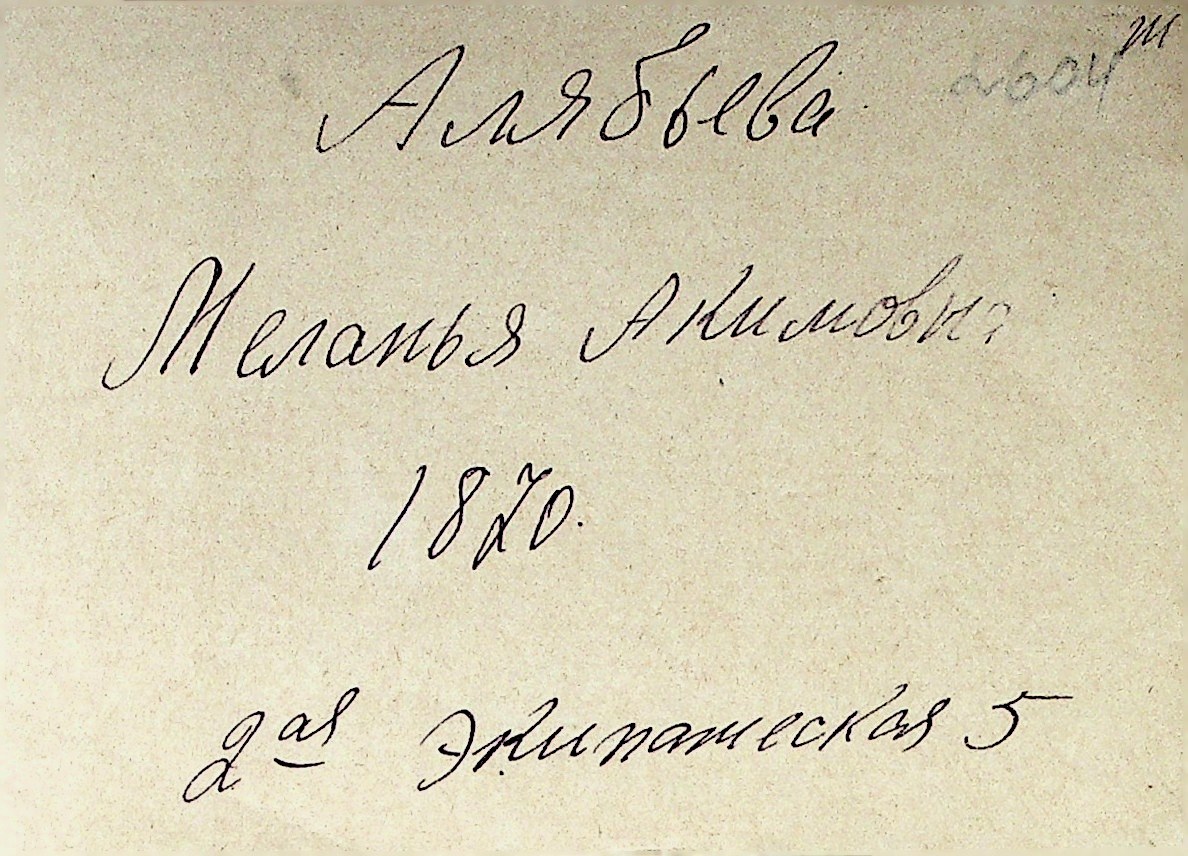 2604 ж
Алябьева
Меланья Акимовна
1870.
2ая Экипажеская 5